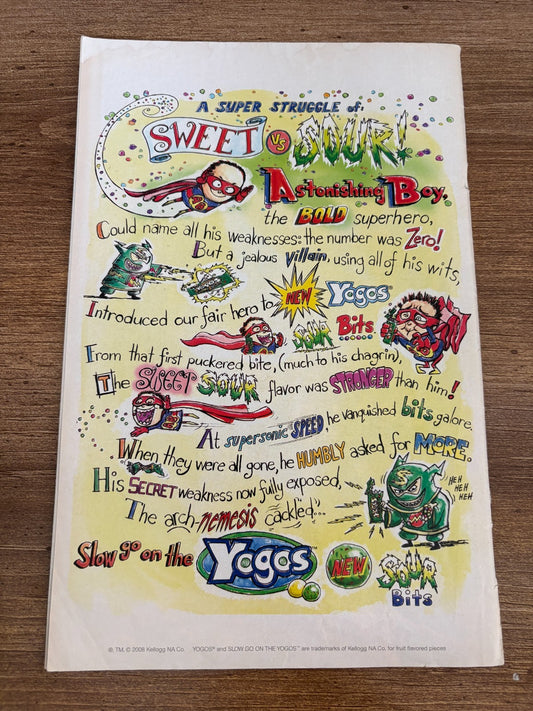 A SUPER STRUGGLE of:
SWEET VS SOUR!
Astonishing Boy,
the BOLD superhero,
Could name all his weaknesses: the number was Zero!
But a jealous Villain, using all of his wits,
Introduced our fair hero to NEW Yogos
SOUR Bits.
From that first puckered bite, (much to his chagrin),
The SWEET SOUR flavor was STRONGER than him!
At supersonic SPEED he vanquished bits galore.
When they were all gone, he HUMBLY asked for MORE.
His SECRET weakness now fully exposed,
HEH
HEH
HEH
The arch-nemesis cackled:"..
Slow go on the Yogos™ NEW SOUR
Bits
®, TM, © 2008 Kellogg NA Co. YOGOS® and SLOW GO ON THE YOGOS™ are trademarks of Kellogg NA Co. for fruit flavored pieces